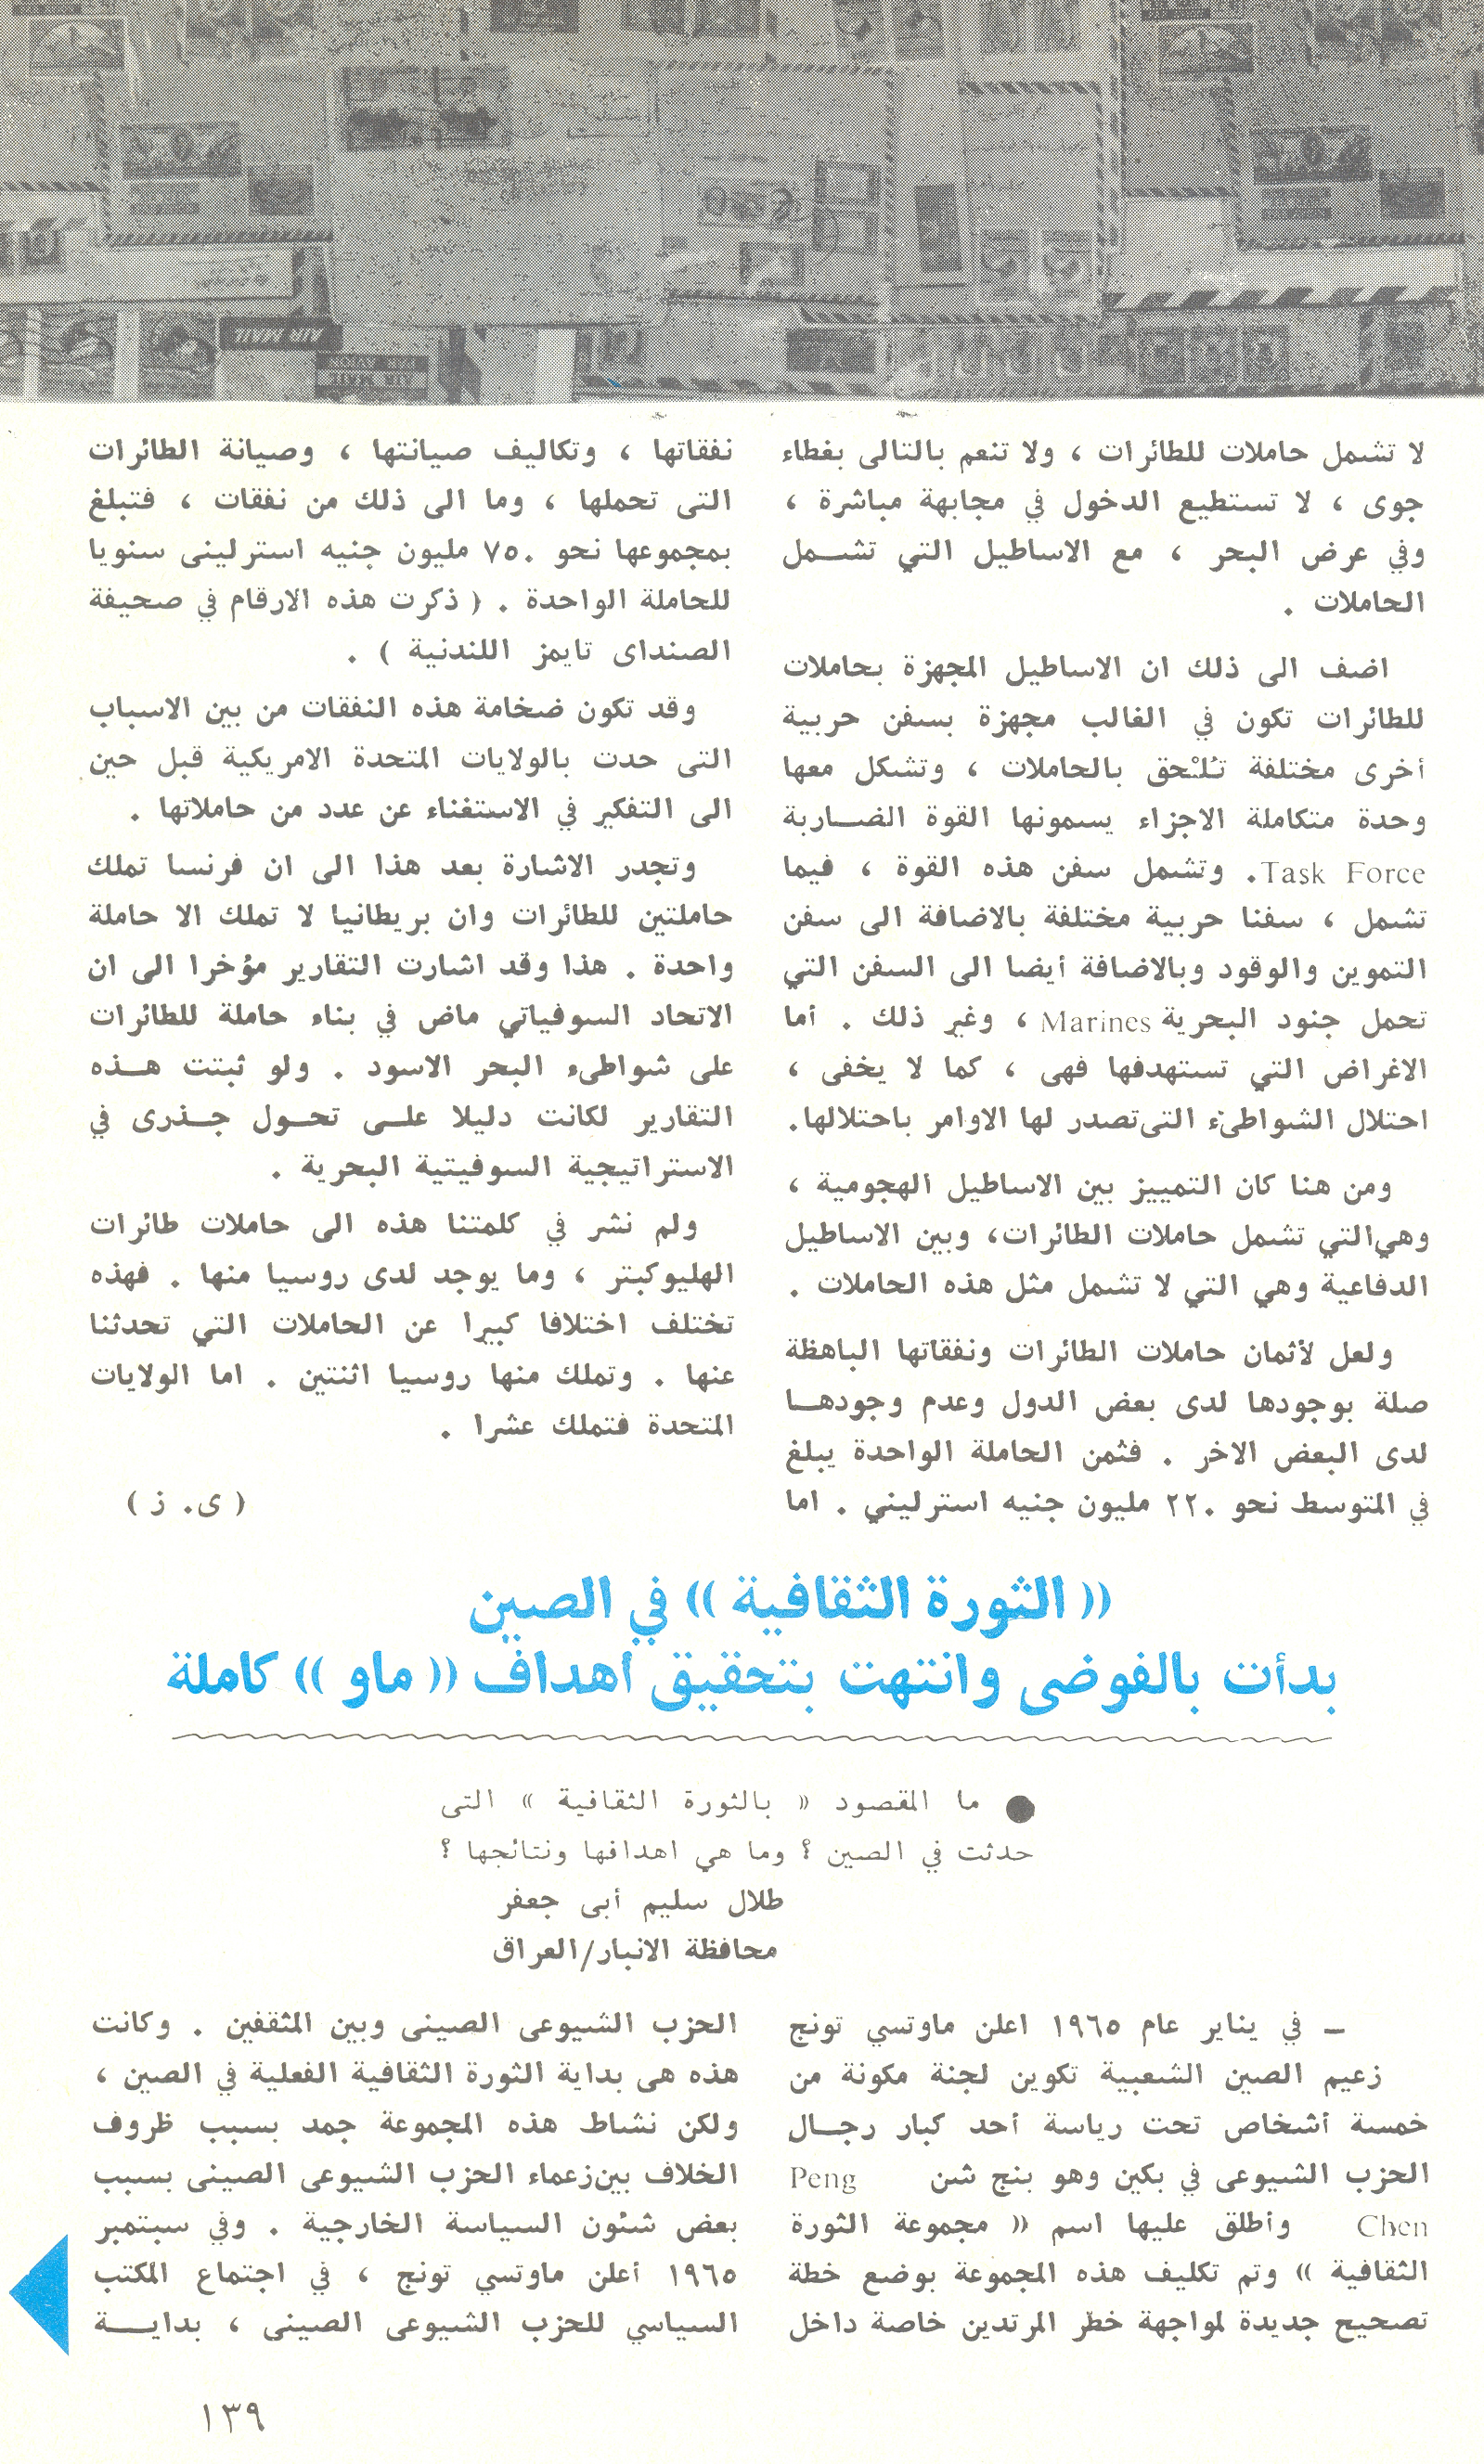 AIR MAIL
AIR MAIL
PAR AVION
لا تشمل حاملات للطائرات ، ولا تنعم بالتالى بغطاء
جوى ، لا تستطيع الدخول في مجابهة مباشرة ،
وفي عرض البحر ، مع الاساطيل التي تشـــمل
الحاملات .
اضف الى ذلك ان الاساطيل المجهزة بحاملات
للطائرات تكون في الغالب مجهزة بسفن حربية
أخرى مختلفة تُلْحق بالحاملات ، وتشكل معها
وحدة متكاملة الاجزاء يسمونها القوة الضــاربة
Task Force. وتشمل سفن هذه القوة ، فيما
تشمل ، سفنا حربية مختلفة بالاضافة الى سفن
التموين والوقود وبالاضافة أيضا الى السفن التي
تحمل جنود البحرية Marines ، وغير ذلك . أما
الاغراض التي تستهدفها فهى ، كما لا يخفى ،
احتلال الشواطىء التى تصدر لها الاوامر باحتلالها.
ومن هنا كان التمييز بين الاساطيل الهجومية ،
وهي التي تشمل حاملات الطائرات، وبين الاساطيل
الدفاعية وهي التي لا تشمل مثل هذه الحاملات .
ولعل لأثمان حاملات الطائرات ونفقاتها الباهظة
صلة بوجودها لدى بعض الدول وعدم وجودهـــا
لدى البعض الاخر . فثمن الحاملة الواحدة يبلغ
في المتوسط نحو ٢٢٠ مليون جنيه استرليني . اما
نفقاتها ، وتكاليف صيانتها ، وصيانة الطائرات
التى تحملها ، وما الى ذلك من نفقات ، فتبلغ
بمجموعها نحو ٧٥٠ مليون جنيه استرلينى سنويا
للحاملة الواحدة . ( ذكرت هذه الارقام في صحيفة
الصنداى تايمز اللندنية ) .
وقد تكون ضخامة هذه النفقات من بين الاسباب
التى حدت بالولايات المتحدة الامريكية قبل حين
الى التفكير في الاستغناء عن عدد من حاملاتها .
وتجدر الاشارة بعد هذا الى ان فرنسا تملك
حاملتين للطائرات وان بريطانيا لا تملك الا حاملة
واحدة . هذا وقد اشارت التقارير مؤخرا الى ان
الاتحاد السوفياتي ماض في بناء حاملة للطائرات
على شواطىء البحر الاسود . ولو ثبتت هــذه
التقارير لكانت دليلا علــى تحــول جــذرى في
الاستراتيجية السوفيتية البحرية .
ولم نشر في كلمتنا هذه الى حاملات طائرات
الهليوكبتر ، وما يوجد لدى روسيا منها . فهذه
تختلف اختلافا كبيرا عن الحاملات التي تحدثنا
عنها . وتملك منها روسيا اثنتين . اما الولايات
المتحدة فتملك عشرا .
( ى. ز )
(( الثورة الثقافية )) في الصين
بدأت بالفوضى وانتهت بتحقيق أهداف (( ماو )) كاملة
● ما المقصود « بالثورة الثقافية » التى
حدثت في الصين ؟ وما هي اهدافها ونتائجها ؟
طلال سليم أبى جعفر
محافظة الانبار/العراق
– في يناير عام ١٩٦٥ اعلن ماوتسي تونج
زعيم الصين الشعبية تكوين لجنة مكونة من
خمسة أشخاص تحت رياسة أحد كبار رجــال
الحزب الشيوعى في بكين وهو بنج شن Peng
Chen وأطلق عليها اسم (( مجموعة الثورة
الثقافية )) وتم تكليف هذه المجموعة بوضع خطة
تصحيح جديدة لمواجهة خطر المرتدين خاصة داخل
الحزب الشيوعى الصينى وبين المثقفين . وكانت
هذه هى بداية الثورة الثقافية الفعلية في الصين ،
ولكن نشاط هذه المجموعة جمد بسبب ظروف
الخلاف بين زعماء الحزب الشيوعى الصينى بسبب
بعض شئون السياسة الخارجية . وفي سبتمبر
١٩٦٥ أعلن ماوتسي تونج ، في اجتماع المكتب
السياسي للحزب الشيوعى الصينى ، بدايــــة
١٣٩